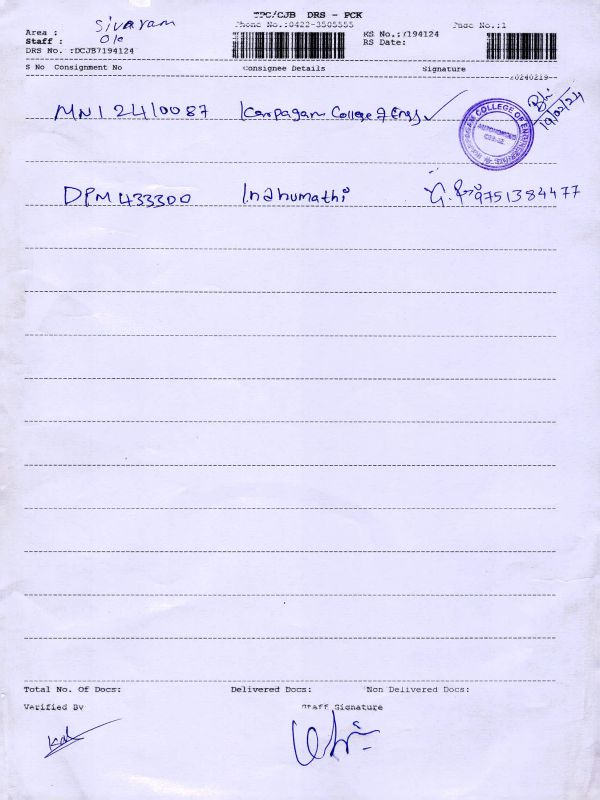 TPC/CJB DRS - PCK
Phone No.:0422-3505555 Page No.:1
Area : Sivaram
Staff : O/o
DRS No. :DCJB7194124
RS No.:7194124
RS Date:
S No Consignment No Consignee Details Signature
20240219
MNI 2410087 Karpagam College of Engg ✓ 19/02/24
COLLEGE OF ENGINEERING
AUTONOMOUS
DPM 433300 Indhumathi 9751384477
Total No. Of Docs: Delivered Docs: Non Delivered Docs:
Verified By Staff Signature